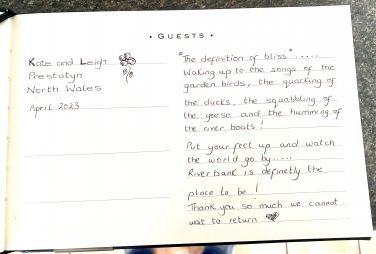 • GUESTS •
Kate and Leigh
Prestatyn
North Wales
April 2023
"The definition of bliss" .....
Waking up to the songs of the
garden birds, the quacking of
the ducks, the squabbling of
the geese and the humming of
the river boats!
Put your feet up and watch
the world go by.....
Riverbank is definetly the
place to be!
Thank you so much we cannot
wait to return